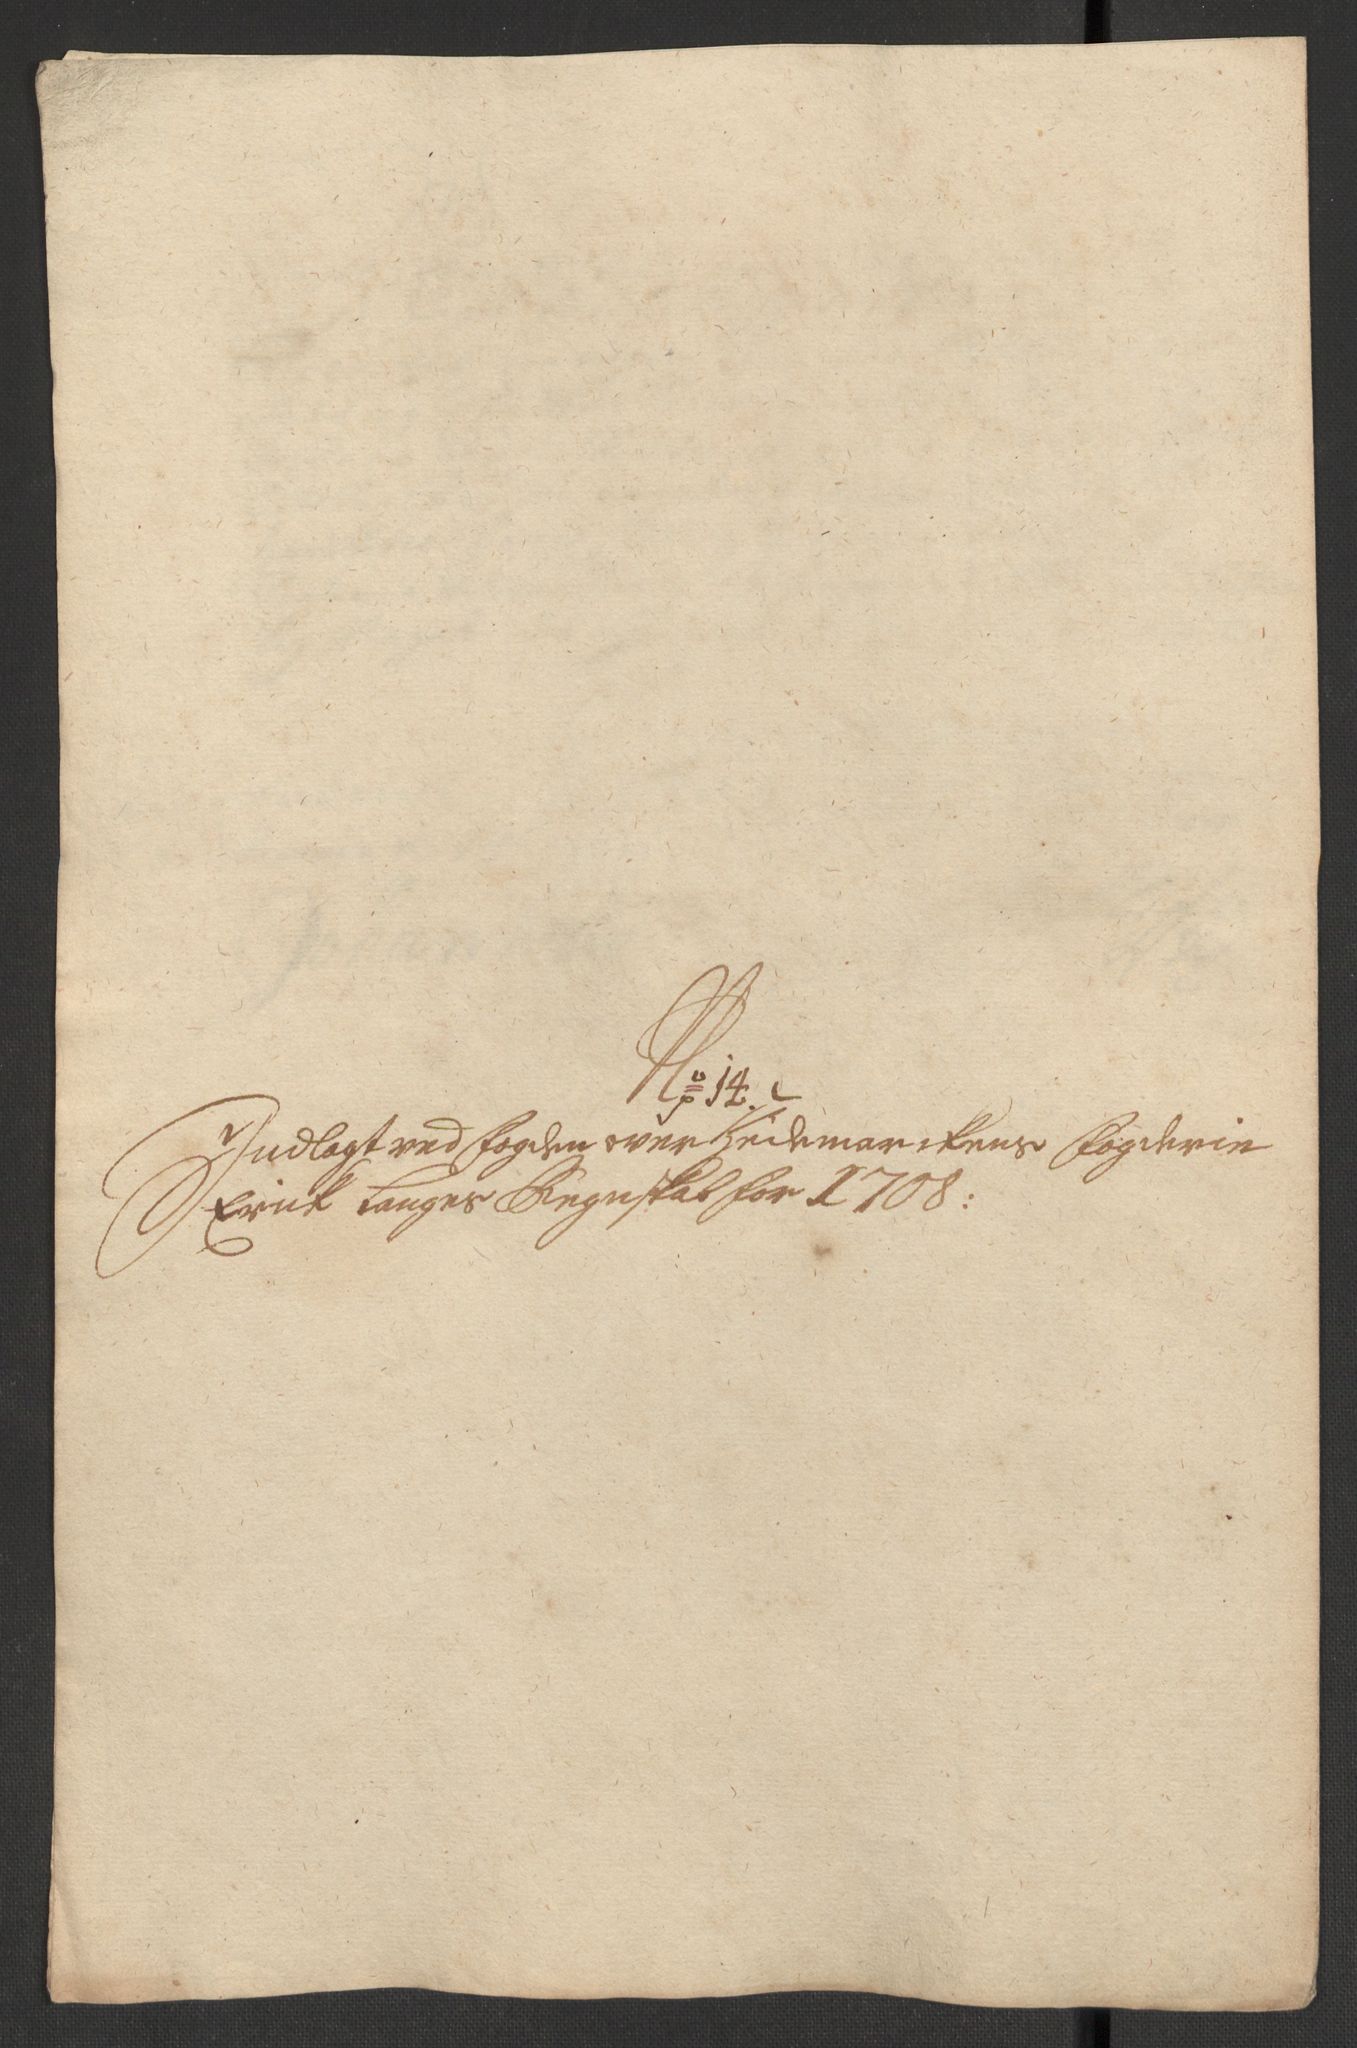 No 14.
Indlagt ved fogden over Hedemarckens fogderie
Erick Langes Regnskab for 1708: